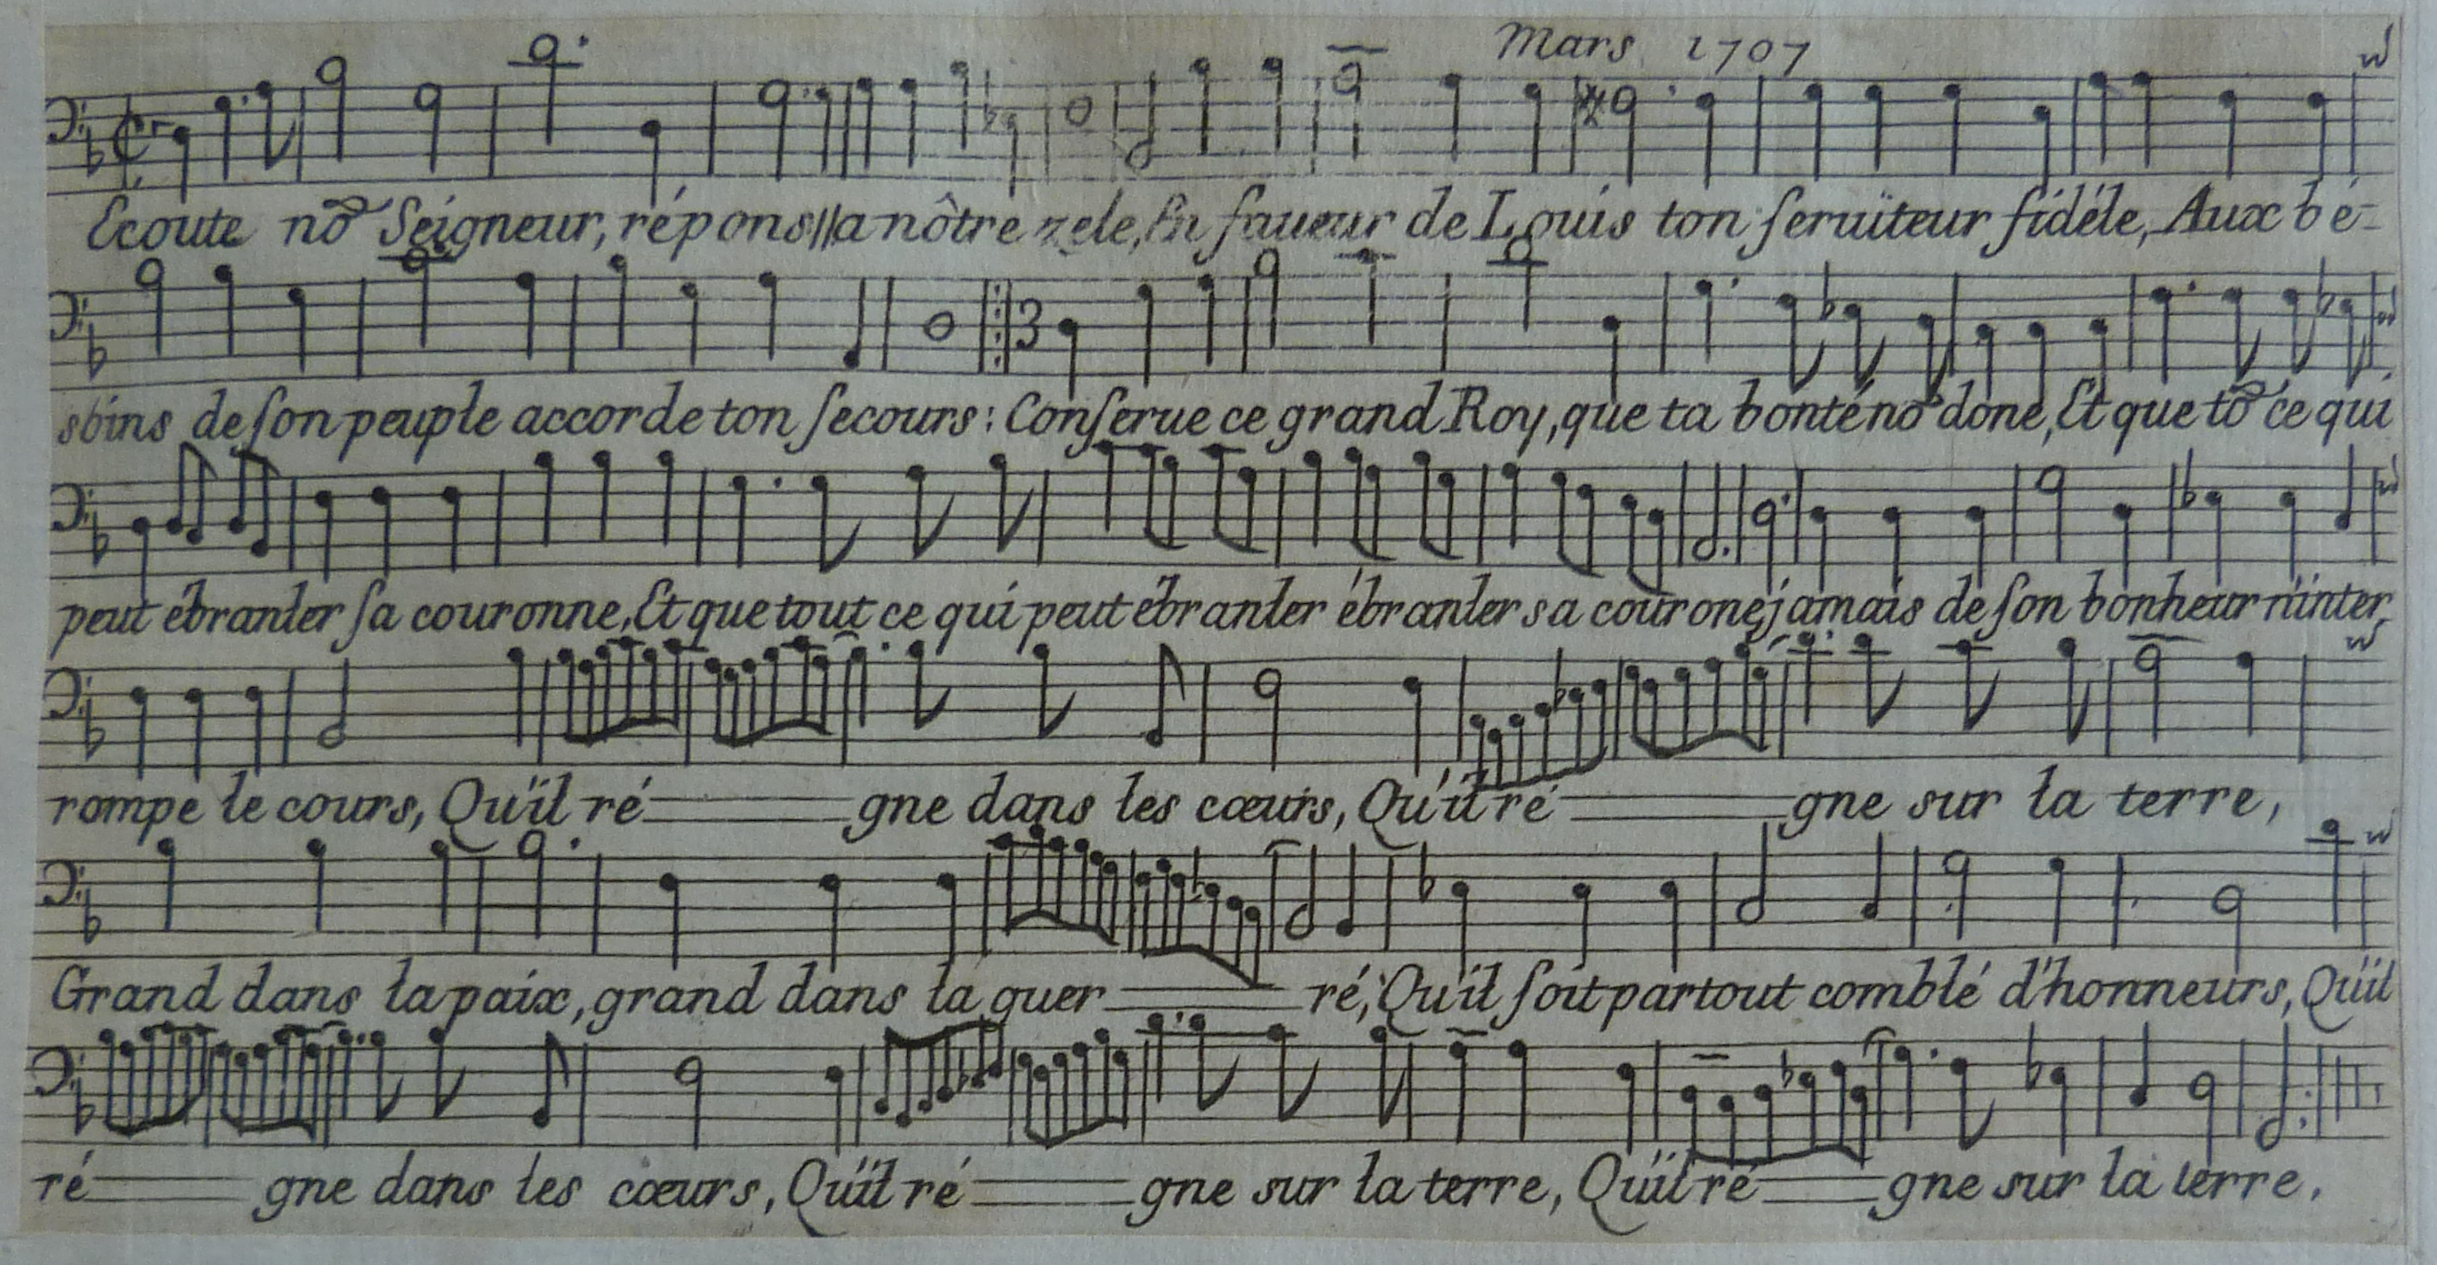 Mars 1707
Ecoute no⁹ Seigneur, répons//a nôtre zele, En faueur de Louis ton seruïteur fidéle, Aux bé-
soins de son peuple accorde ton secours: Conserue ce grand Roy, que ta bonté no⁹ done, Et que to⁹ ce qui
3
peut ébranler sa couronne, Et que tout ce qui peut ébranler ébranler sa courone jamais de son bonheur n'inter
rompe le cours, Qu'il ré gne dans les cœurs, Qu'il ré gne sur la terre,
Grand dans la paix, grand dans la guer ré, Qu'il soit partout comblé d'honneurs, Qu'il
ré gne dans les cœurs, Qu'il ré gne sur la terre, Qu'il ré gne sur la terre.